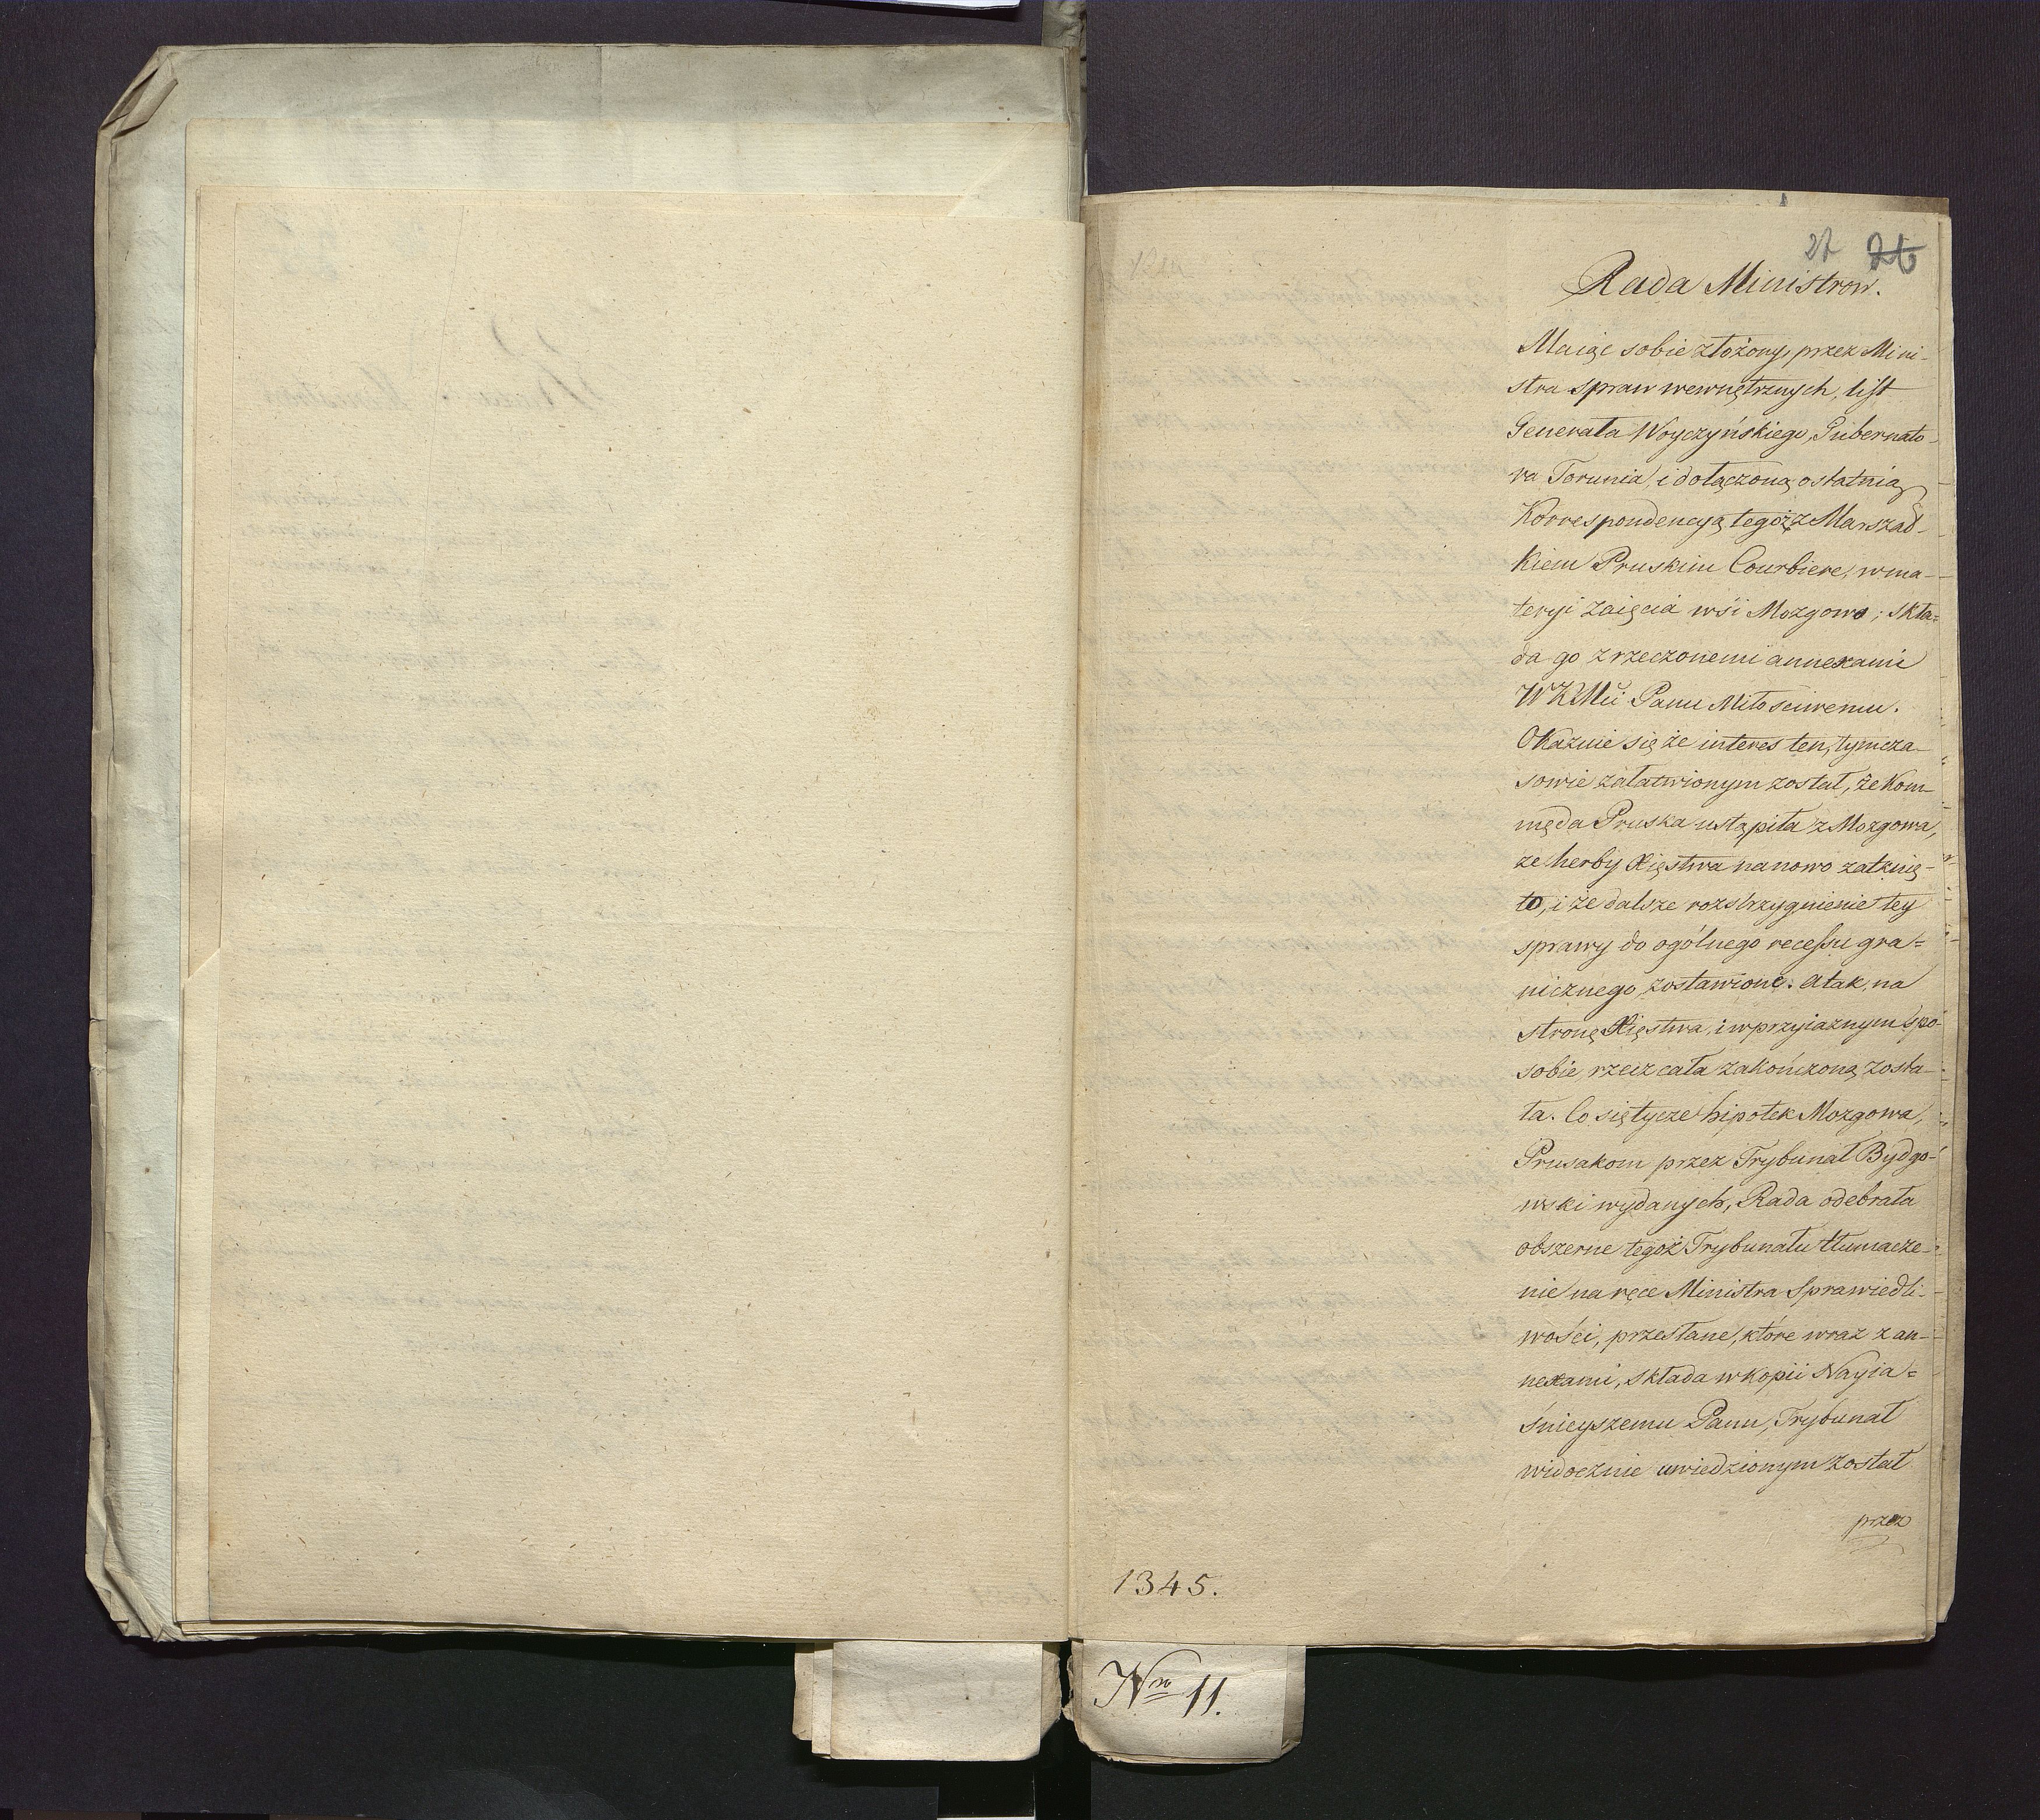 27 26
Rada Ministrow.
Maiąc sobie złożony, przez Mini-
stra spraw wewnętrznych, list
Generała Woyczyńskiego, Gubernato-
ra Torunia, i dołączoną ostatnią
Korrespondencyą tegoż z Marszał-
kiem Pruskim Courbiere, w ma-
teryi zaięcia wsi Mozgowa; skła=
da go z rzeczonemi annexami
WKMci Panu Miłosciwemu.
Okazuie się że interes ten, tymcza-
sowie załatwionym został, że Kom-
męda Pruska ustąpiła z Mozgowa,
ze herby Xięstwa nanowo zatknię-
to, i że dalsze rozstrzygnienie tey
sprawy do ogólnego recessu gra=
nicznego, zostawione. A tak, na
stronę Xięstwa, i w przyiaznym spo-
sobie rzecz cała zakończoną zosta-
ła. Co się tycze hipotek Mozgowa,
Prusakom przez Trybunał Bydgo-
wski wydanych, Rada odebrała
obszerne tegoż Trybunału tłumacze-
nie na ręce Ministra Sprawiedli-
wości, przesłane, które wraz z an-
nexami, składa w kopii Nayia=
śnieyszemu Panu, Trybunał
widocznie uwiedzionym został
przez
1345.
Nro 11.